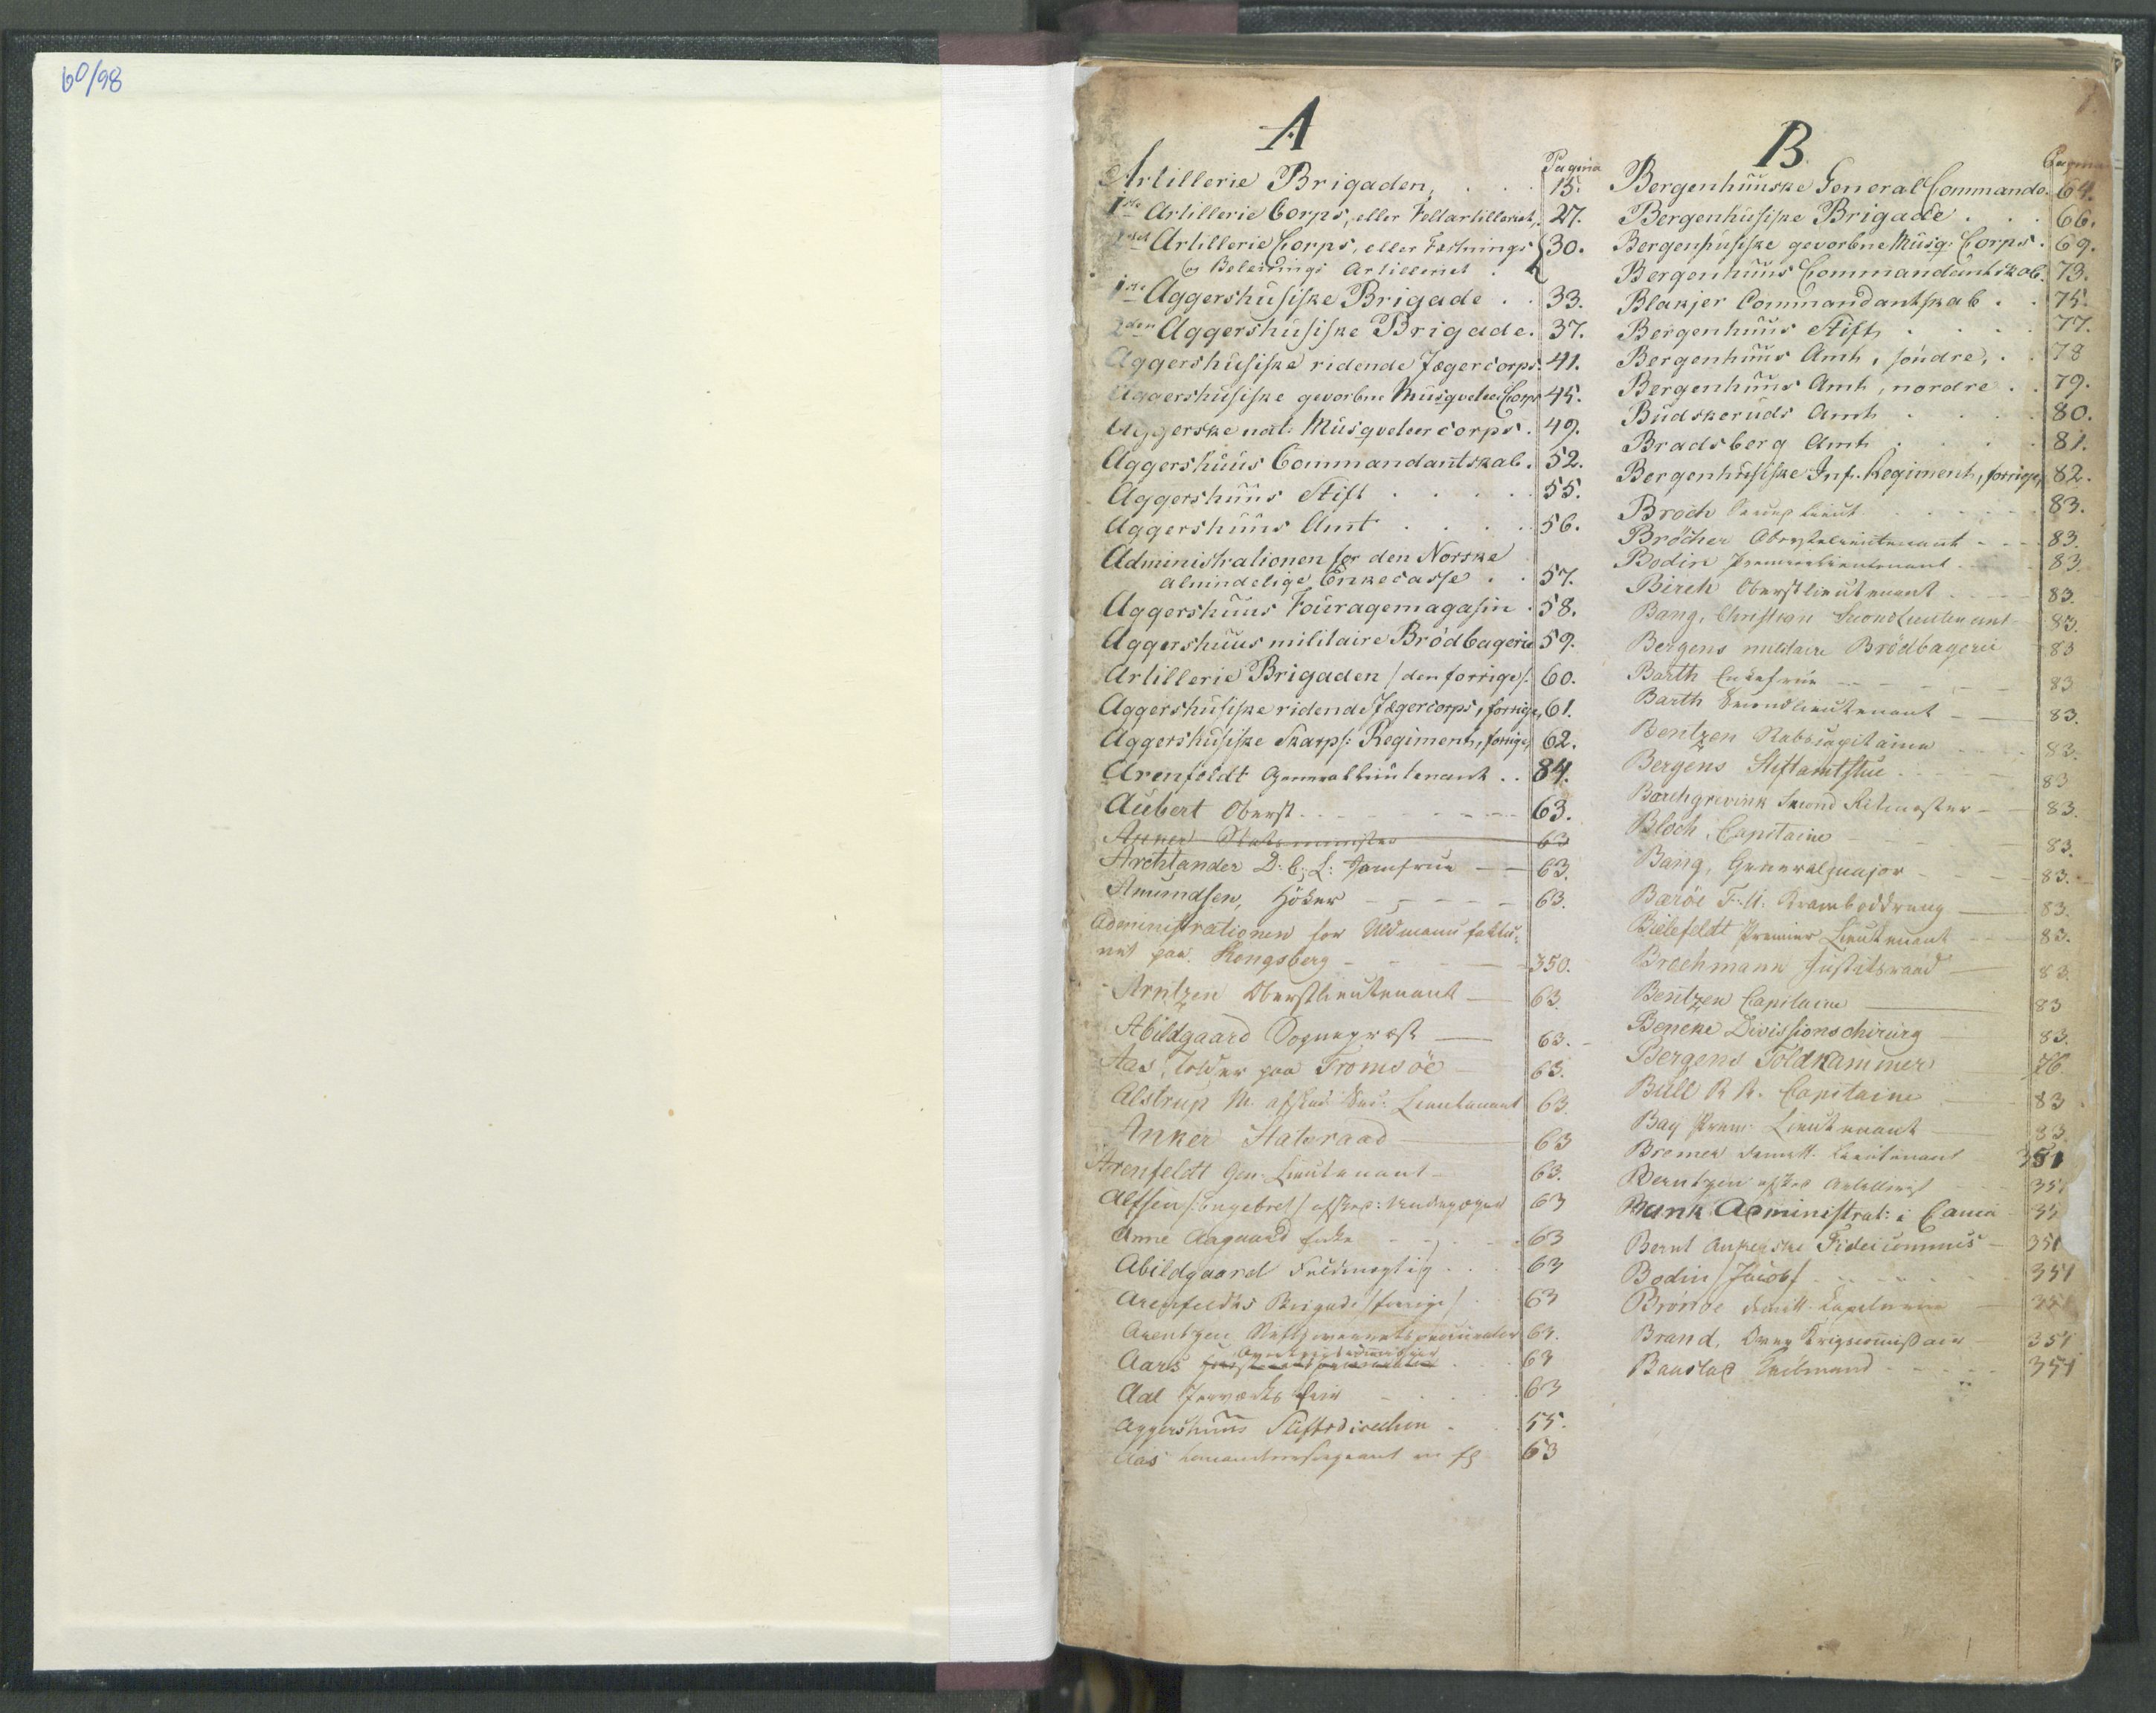 60/98
1.
A
Pagina
Artillerie Brigaden, . . . 15.
1ste Artillerie Corps, eller Feltartilleriet, 27.
2det Artillerie Corps, eller Fæstnings 30.
og Beleirings Artilleriet .
1ste Aggershusiske Brigade . . 33.
2den Aggershusiske Brigade. 37.
Aggershusiske ridende Jægercorps. 41.
Aggershusiske gevorbne Musqueteer Corps 45.
Aggerske nat: Musqueteercorps. 49.
Aggershuus Commandantskab. 52.
Aggershuus Stift . . . . . 55.
Aggershuus Amt . . . . . 56.
Administrationen for den Norske
almindelige Enkecasse . . 57.
Aggershuus Fouragemagasin . 58.
Aggershuus militaire Brödbageri 59.
Artillerie Brigaden /den forrige/. 60.
Aggershusiske ridende Jægercorps, forrige, 61.
Aggershusiske Skarps: Regiment, forrige, 62.
Arenfeldt Generallieutenant . . 84.
Aubert Oberst . . . 63.
Anker Statsminister 63
Archtander D. C. L: Jomfrue — 63.
Amundsen, Höker - - - - 63.
Administrationen for Uldmanufaktu-
ret paa Kongsberg - - - 350.
Arntzen Oberstlieutenant — 63.
Abildgaard Sognepræst — 63.
Aas, Tolder paa Tromsöe — 63.
Alstrup M. afsked: Sec: Lieutenant 63.
Anker Statsraad — 63
Arenfeldt Gen: Lieutenant 63.
Alfsen /:Engebret/ afsked: 63
Anne Aagaard Enke - - - 63
Abildgaard Fuldmægtig . . . 63
Arenfeldts Brigade /forrige/ 63
Arentzen 63.
Overkrigscommissair
Aars 63
Aal Jernværks Eier - . . . 63
Aggershuus Stiftsdirection . . 55.
Aas 63
B.
Pagina
Bergenhuuske General Commando. 64.
Bergenhusiske Brigade . . . 66.
Bergenhusiske gevorbne Musq: Corps . 69.
Bergenhuus Commandantskab. 73.
Blakjer Commandantskab . . 75.
Bergenhuus Stift, . . . . 77.
Bergenhuus Amt, söndre, . . 78
Bergenhuus Amt, nordre . . 79.
Budskeruds Amt . . . . 80.
Bradsberg Amt . . . . 81.
Bergenhusiske Inf. Regiment, forrige, 82.
Broch Second Lieut. . . . . 83.
Bröcher Oberstelieutenant - - - 83.
Bodin Premierlieutenant . . . 83.
Birch Oberstlieutenant - - - 83.
Bang, Christian SecondLieutenant 83.
Bergens militaire Brödbageri 83
Barth Enkefrue - - - - 83
Barth Secondlieutenant — 83.
Bentzen Stabscapitaine . . . 83.
Bergens Stiftamtstue . . . 83
Barchgrevink Second Ritmester - 83.
Bloch, Capitaine 83.
Bang, Generalmajor - - - 83.
Baröe F. U. Kramboddreng — 83.
Bielefeldt Premier Lieutenant - - 83.
Brochmann Justitsraad — 83.
Bentzen Capitaine — 83
Beneke Divisionschirurg — 83.
Bergens Toldkammer 76
Bull R R. Capitaine — 83
Bay Prem: Lieutenant — 83.
Bremer demitt. Lieutenant 351
Berntzen afsked Artillerist 351
Bank Administrat: i 35
Bernt Ankerske Fideicommis — 351
Bodin /Jacob/ . . . . 351
Brönöe demitt. 351
Brand, Over Krigscommissair 351
Baustad 351